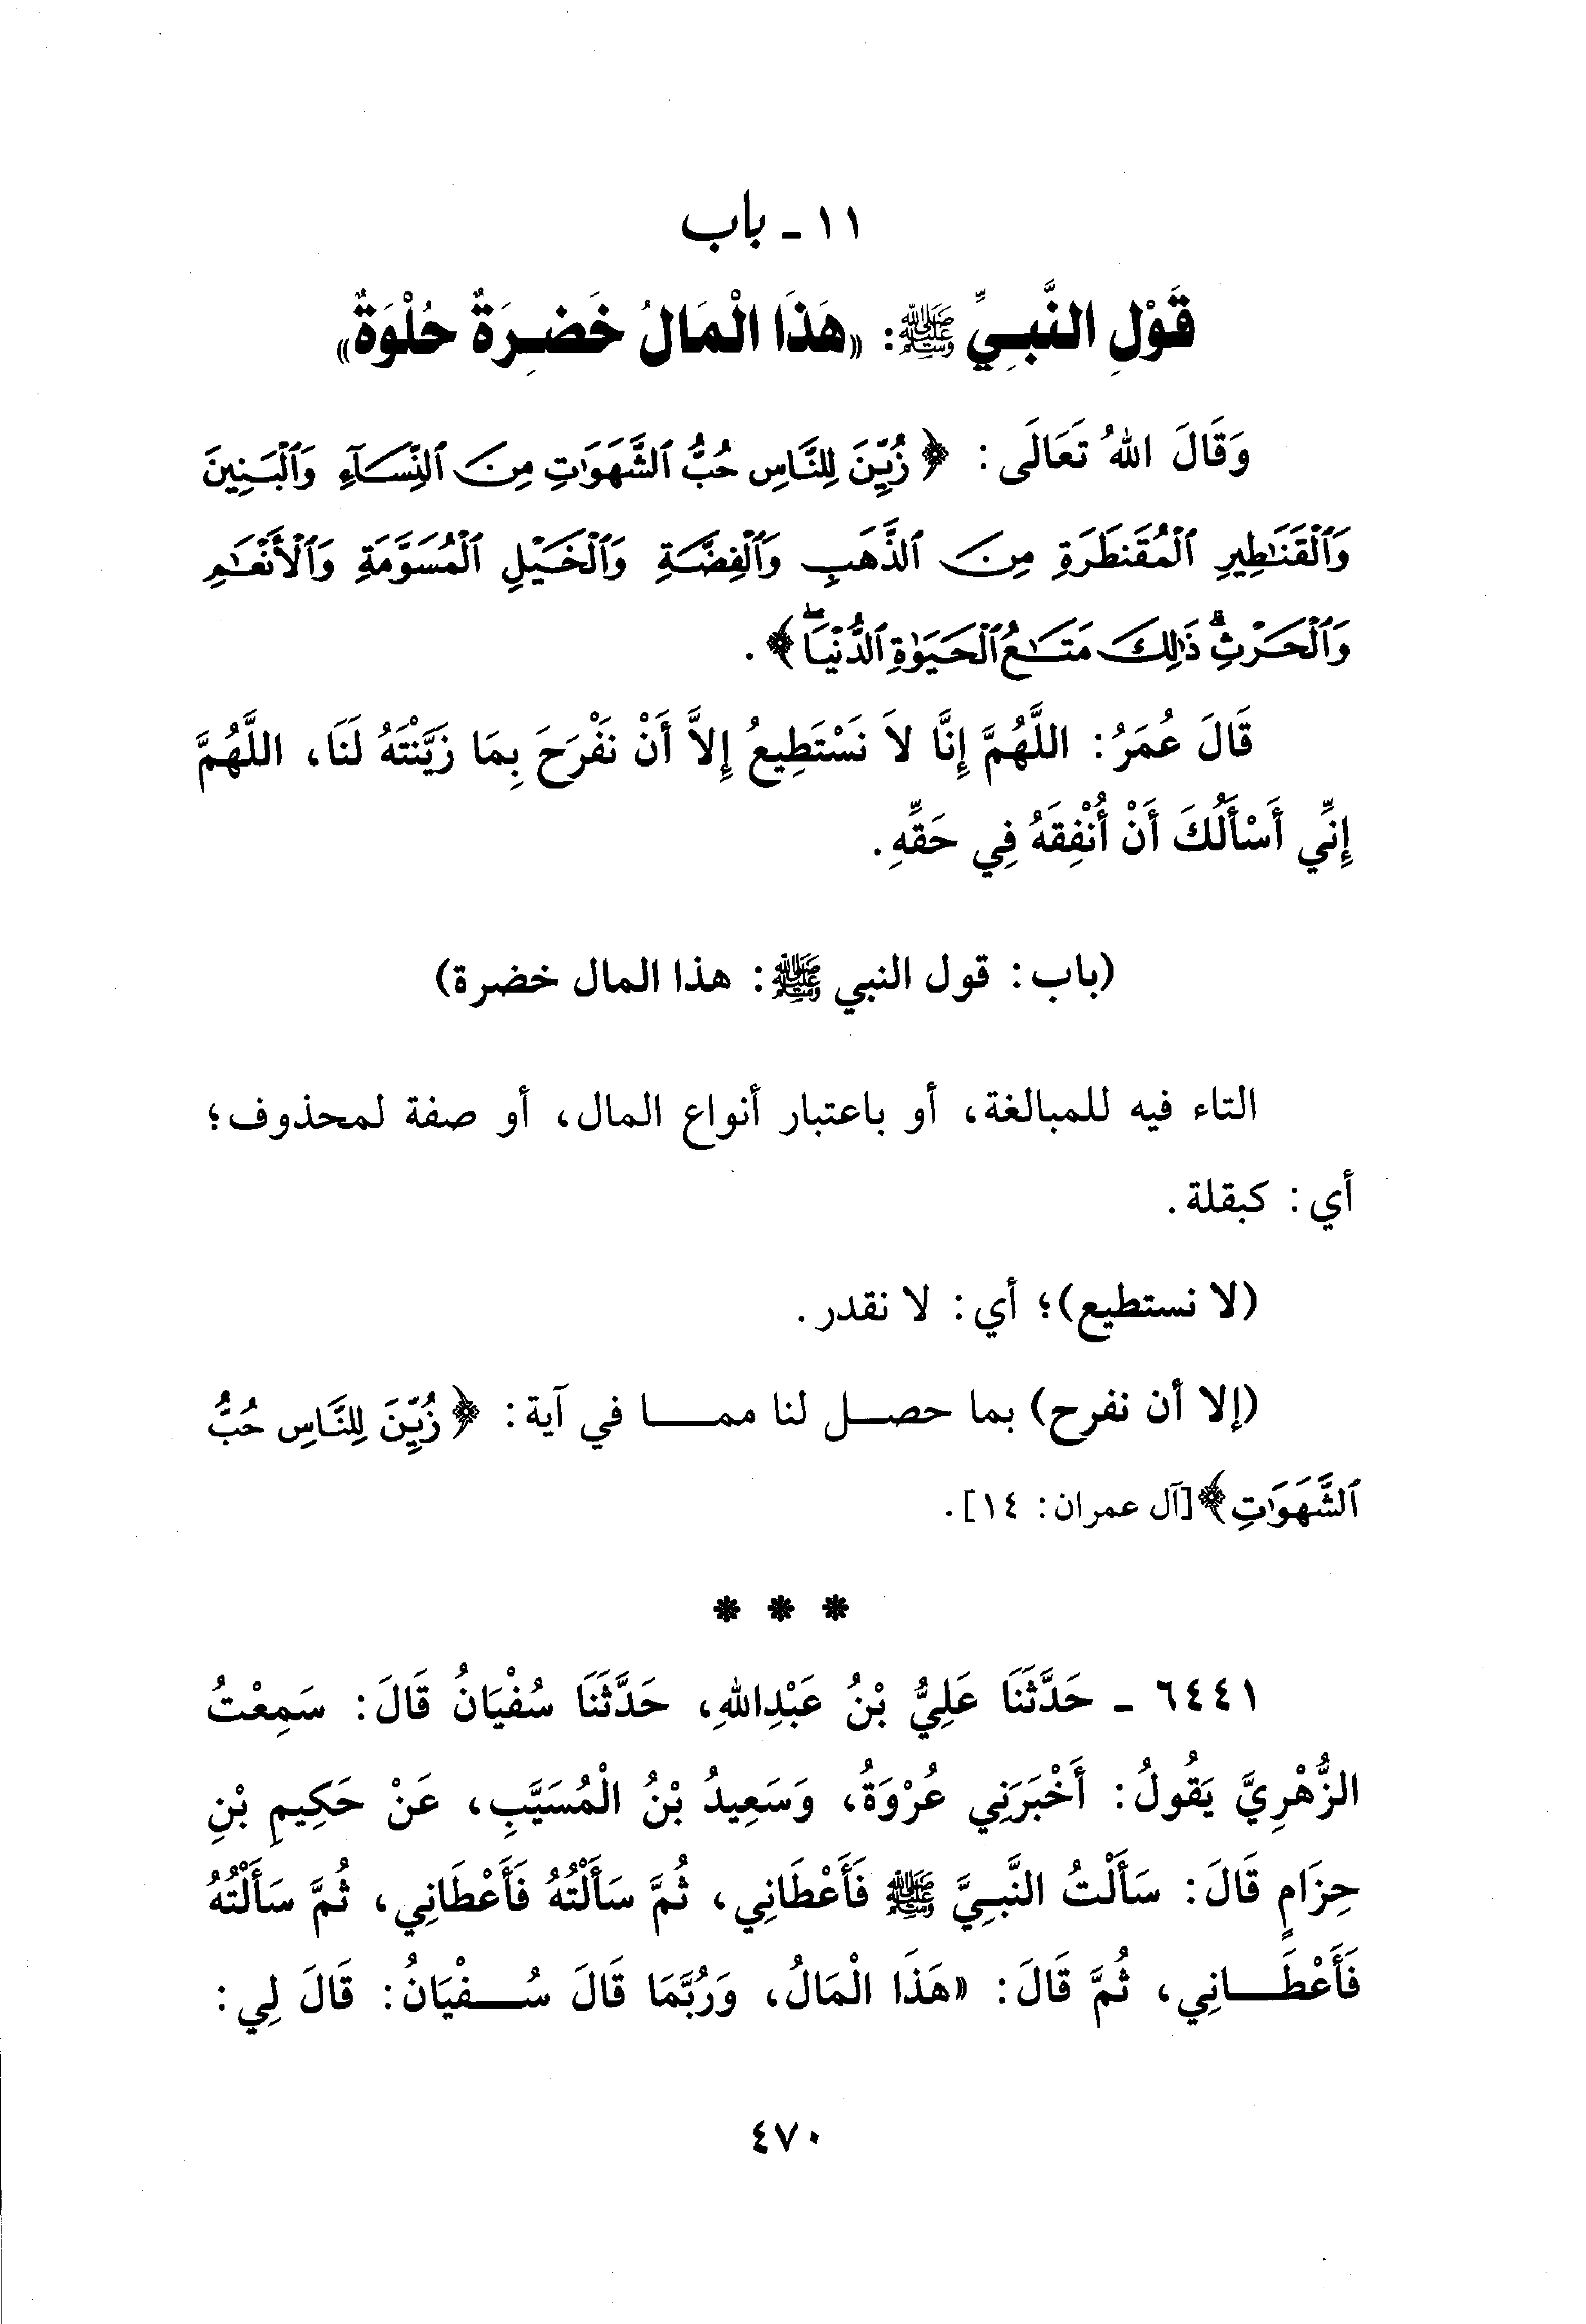 ١١ - باب
قَوْلِ النَّبِيِّ ﷺ: «هَذَا الْمَالُ خَضِرَةٌ حُلْوَةٌ»
وَقَالَ اللهُ تَعَالَى: ﴿زُيِّنَ لِلنَّاسِ حُبُّ ٱلشَّهَوَٰتِ مِنَ ٱلنِّسَآءِ وَٱلْبَنِينَ
وَٱلْقَنَٰطِيرِ ٱلْمُقَنطَرَةِ مِنَ ٱلذَّهَبِ وَٱلْفِضَّةِ وَٱلْخَيْلِ ٱلْمُسَوَّمَةِ وَٱلْأَنْعَٰمِ
وَٱلْحَرْثِۗ ذَٰلِكَ مَتَٰعُ ٱلْحَيَوٰةِ ٱلدُّنْيَاۖ﴾.
قَالَ عُمَرُ: اللَّهُمَّ إِنَّا لاَ نَسْتَطِيعُ إِلاَّ أَنْ نَفْرَحَ بِمَا زَيَّنْتَهُ لَنَا، اللَّهُمَّ
إِنِّي أَسْأَلُكَ أَنْ أُنْفِقَهُ فِي حَقِّهِ.
(باب: قول النبي ﷺ: هذا المال خضرة)
التاء فيه للمبالغة، أو باعتبار أنواع المال، أو صفة لمحذوف؛
أي: كبقلة.
(لا نستطيع)؛ أي: لا نقدر.
(إلا أن نفرح) بما حصـل لنا ممـا في آية: ﴿زُيِّنَ لِلنَّاسِ حُبُّ
ٱلشَّهَوَٰتِ﴾[آل عمران: ١٤].
* * *
٦٤٤١ - حَدَّثَنَا عَلِيُّ بْنُ عَبْدِاللهِ، حَدَّثَنَا سُفْيَانُ قَالَ: سَمِعْتُ
الزُّهْرِيَّ يَقُولُ: أَخْبَرَنِي عُرْوَةُ، وَسَعِيدُ بْنُ الْمُسَيَّبِ، عَنْ حَكِيمِ بْنِ
حِزَامٍ قَالَ: سَأَلْتُ النَّبِيَّ ﷺ فَأَعْطَانِي، ثُمَّ سَأَلْتُهُ فَأَعْطَانِي، ثُمَّ سَأَلْتُهُ
فَأَعْطَـانِي، ثُمَّ قَالَ: «هَذَا الْمَالُ، وَرُبَّمَا قَالَ سُـفْيَانُ: قَالَ لِي:
٤٧٠